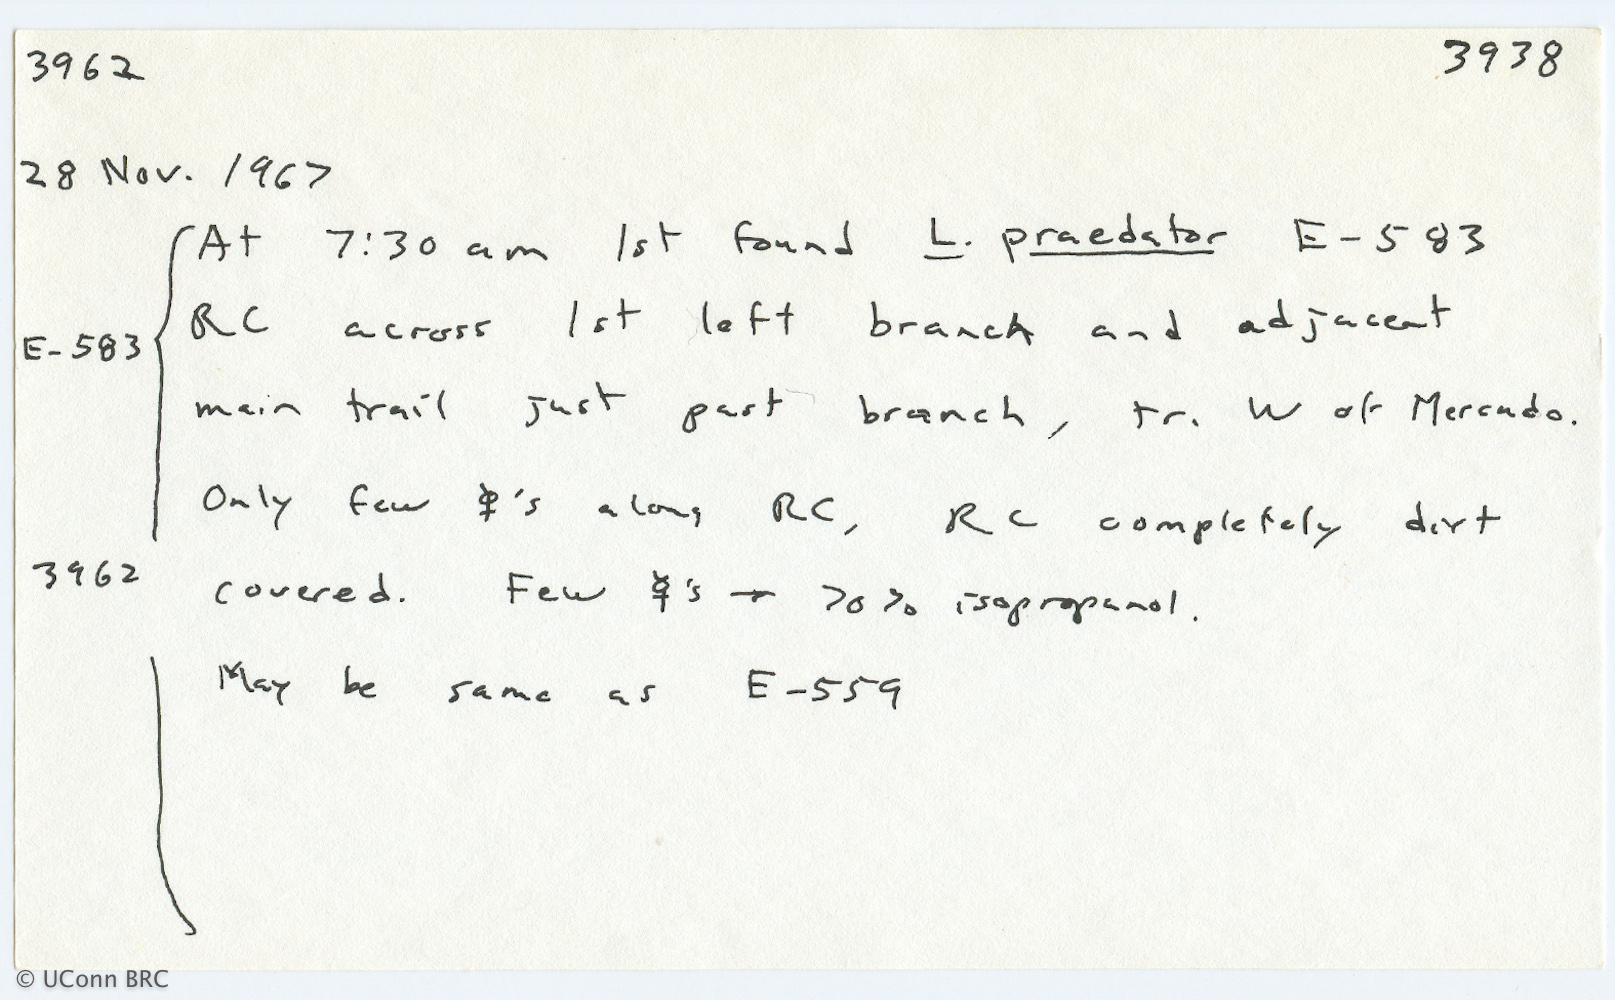 3962 3938
28 Nov. 1967
At 7:30 am 1st found L. praedator E-583
RC across 1st left branch and adjacent
E-583
main trail just past branch, tr. W of Mercado.
Only few ☿'s along RC, RC completely dirt
3962
covered. Few ☿'s → 70% isopropanol.
May be same as E-559
© UConn BRC